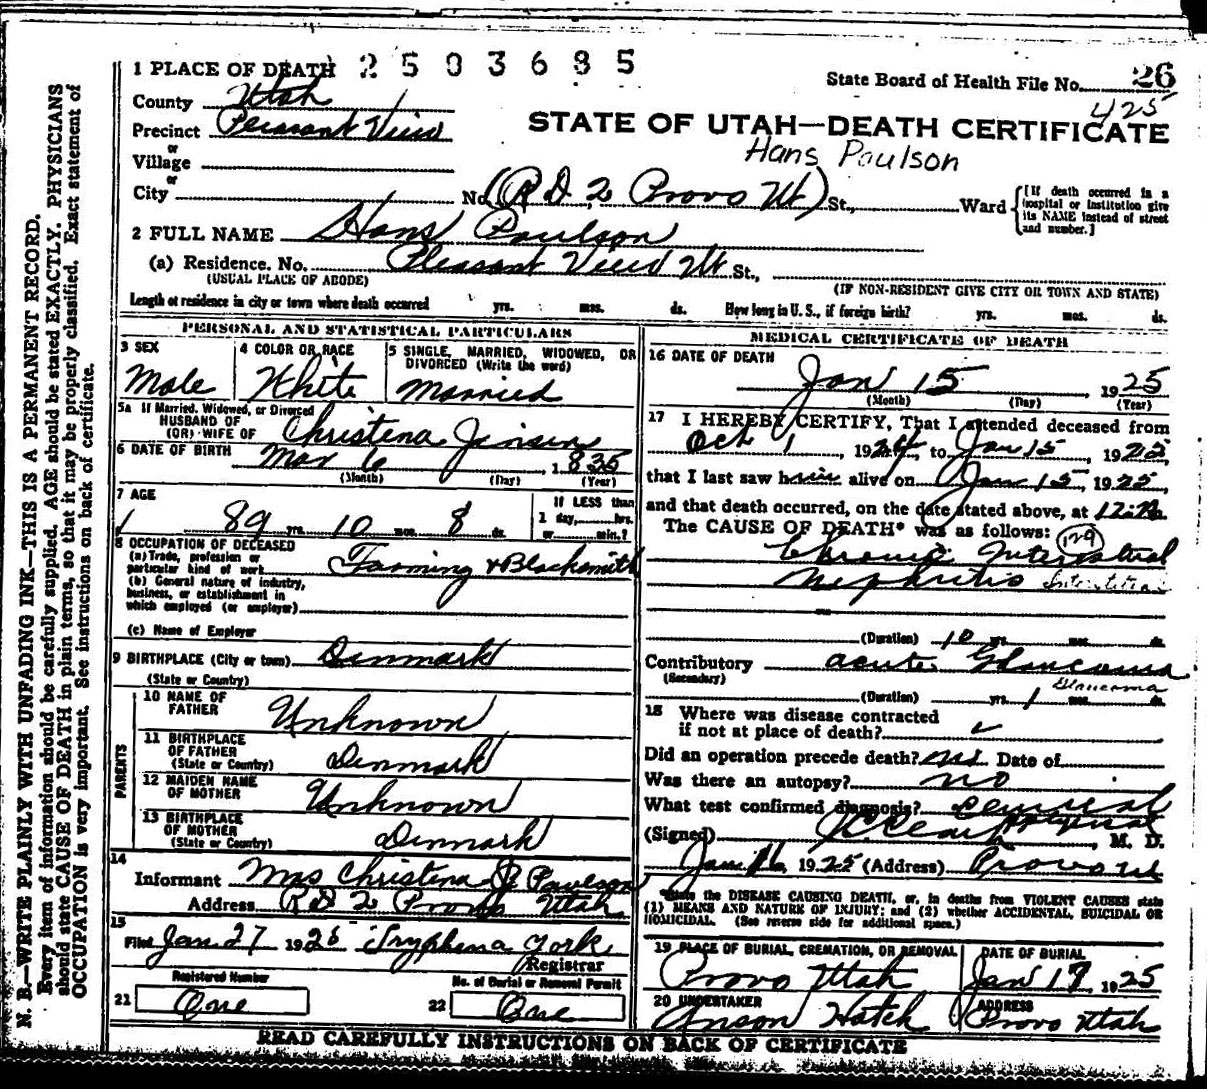 N. B.—WRITE PLAINLY WITH UNFADING INK—THIS IS A PERMANENT RECORD.
Every item of information should be carefully supplied. AGE should be stated EXACTLY. PHYSICIANS
should state CAUSE OF DEATH in plain terms, so that it may be properly classified. Exact statement of
OCCUPATION is very important. See instructions on back of certificate.
1 PLACE OF DEATH 2503685
State Board of Health File No. 26
425
County Utah
Precinct Pleasant View
STATE OF UTAH—DEATH CERTIFICATE
Hans Paulson
or
Village
or
City No. (R D 2 Provo Ut) St., Ward
[If death occurred in a
hospital or institution give
its NAME instead of street
and number.]
2 FULL NAME Hans Paulson
(a) Residence. No. Pleasant View Ut St.,
(USUAL PLACE OF ABODE) (IF NON-RESIDENT GIVE CITY OR TOWN AND STATE)
Length of residence in city or town where death occurred yrs. mos. ds. How long in U. S., if foreign birth? yrs. mos. ds.
PERSONAL AND STATISTICAL PARTICULARS
3 SEX Male
4 COLOR OR RACE White
5 SINGLE, MARRIED, WIDOWED, OR
DIVORCED (Write the word)
Married
5a If Married, Widowed, or Divorced
HUSBAND OF
(OR) WIFE OF Christena Jensen
6 DATE OF BIRTH Mar 6 1835
(Month) (Day) (Year)
7 AGE 89 yrs. 10 mos. 8 ds.
If LESS than
1 day, hrs.
or min.?
8 OCCUPATION OF DECEASED
(a) Trade, profession or
particular kind of work Farming & Blacksmith
(b) General nature of industry,
business, or establishment in
which employed (or employer)
(c) Name of Employer
9 BIRTHPLACE (City or town) Denmark
(State or Country)
PARENTS
10 NAME OF
FATHER Unknown
11 BIRTHPLACE
OF FATHER
(State or Country) Denmark
12 MAIDEN NAME
OF MOTHER Unknown
13 BIRTHPLACE
OF MOTHER
(State or Country) Denmark
14
Informant Mrs Christena J Paulson
Address R D 2 Provo Utah
15
Filed Jan 27 1925 Tryphena York
Registrar
Registered Number
21 One
No. of Burial or Removal Permit
22 One
MEDICAL CERTIFICATE OF DEATH
16 DATE OF DEATH
Jan 15 1925
(Month) (Day) (Year)
17 I HEREBY CERTIFY, That I attended deceased from
Oct 1, 1924, to Jan 15, 1925
that I last saw him alive on Jan 15, 1925,
and that death occurred, on the date stated above, at 12
The CAUSE OF DEATH* was as follows: 129
Chronic
Nephritis Interstitial
(Duration) 10 yrs. mos. ds.
Contributory acute Glaucoma
(Secondary) Glaucoma
(Duration) yrs. 1 mos. ds.
18 Where was disease contracted
if not at place of death?
Did an operation precede death? no Date of
Was there an autopsy? no
What test confirmed diagnosis?
(Signed) , M. D.
Jan 16 1925 (Address) Provo Ut
*State the DISEASE CAUSING DEATH, or, in deaths from VIOLENT CAUSES state
(1) MEANS AND NATURE OF INJURY; and (2) whether ACCIDENTAL, SUICIDAL OR
HOMICIDAL. (See reverse side for additional space.)
19 PLACE OF BURIAL, CREMATION, OR REMOVAL
Provo Utah
DATE OF BURIAL
Jan 17 1925
20 UNDERTAKER
Anson Hatch
ADDRESS
Provo Utah
READ CAREFULLY INSTRUCTIONS ON BACK OF CERTIFICATE